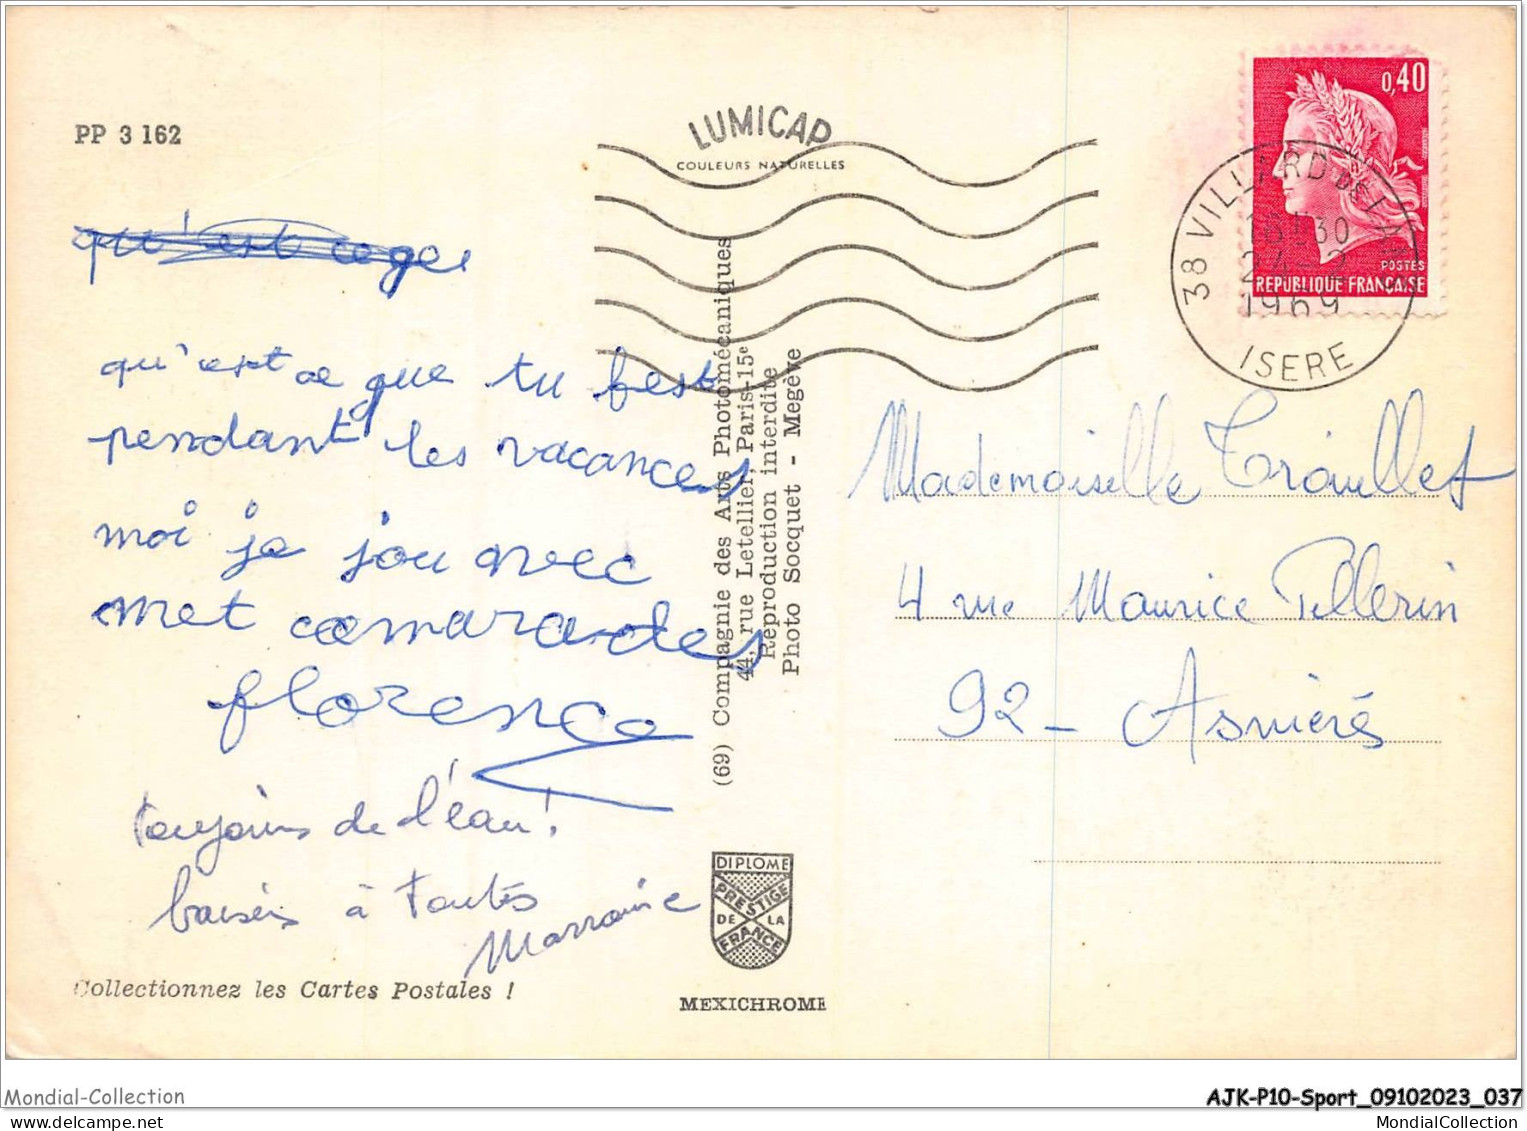 PP 3 162
LUMICAP
COULEURS NATURELLES
0,40
POSTES
REPUBLIQUE FRANÇAISE
38 VILLARD DE LANS
16H30
24-2
1969
ISERE
qu'est ce que
qu'est ce que tu fest
pendant les vacances
moi je jou avec
met camarades
florence
toujours de l'eau!
baisers à toutes
Marraine
Collectionnez les Cartes Postales !
(69) Compagnie des Arts Photomécaniques
44, rue Letellier, Paris-15e
Reproduction interdite
Photo Socquet - Megève
DIPLOME
PRESTIGE
DE LA
FRANCE
MEXICHROME
Mademoiselle Trouillet
4 rue Maurice Pellerin
92 - Asnières
Mondial-Collection
AJK-P10-Sport_09102023_037
MondialCollection